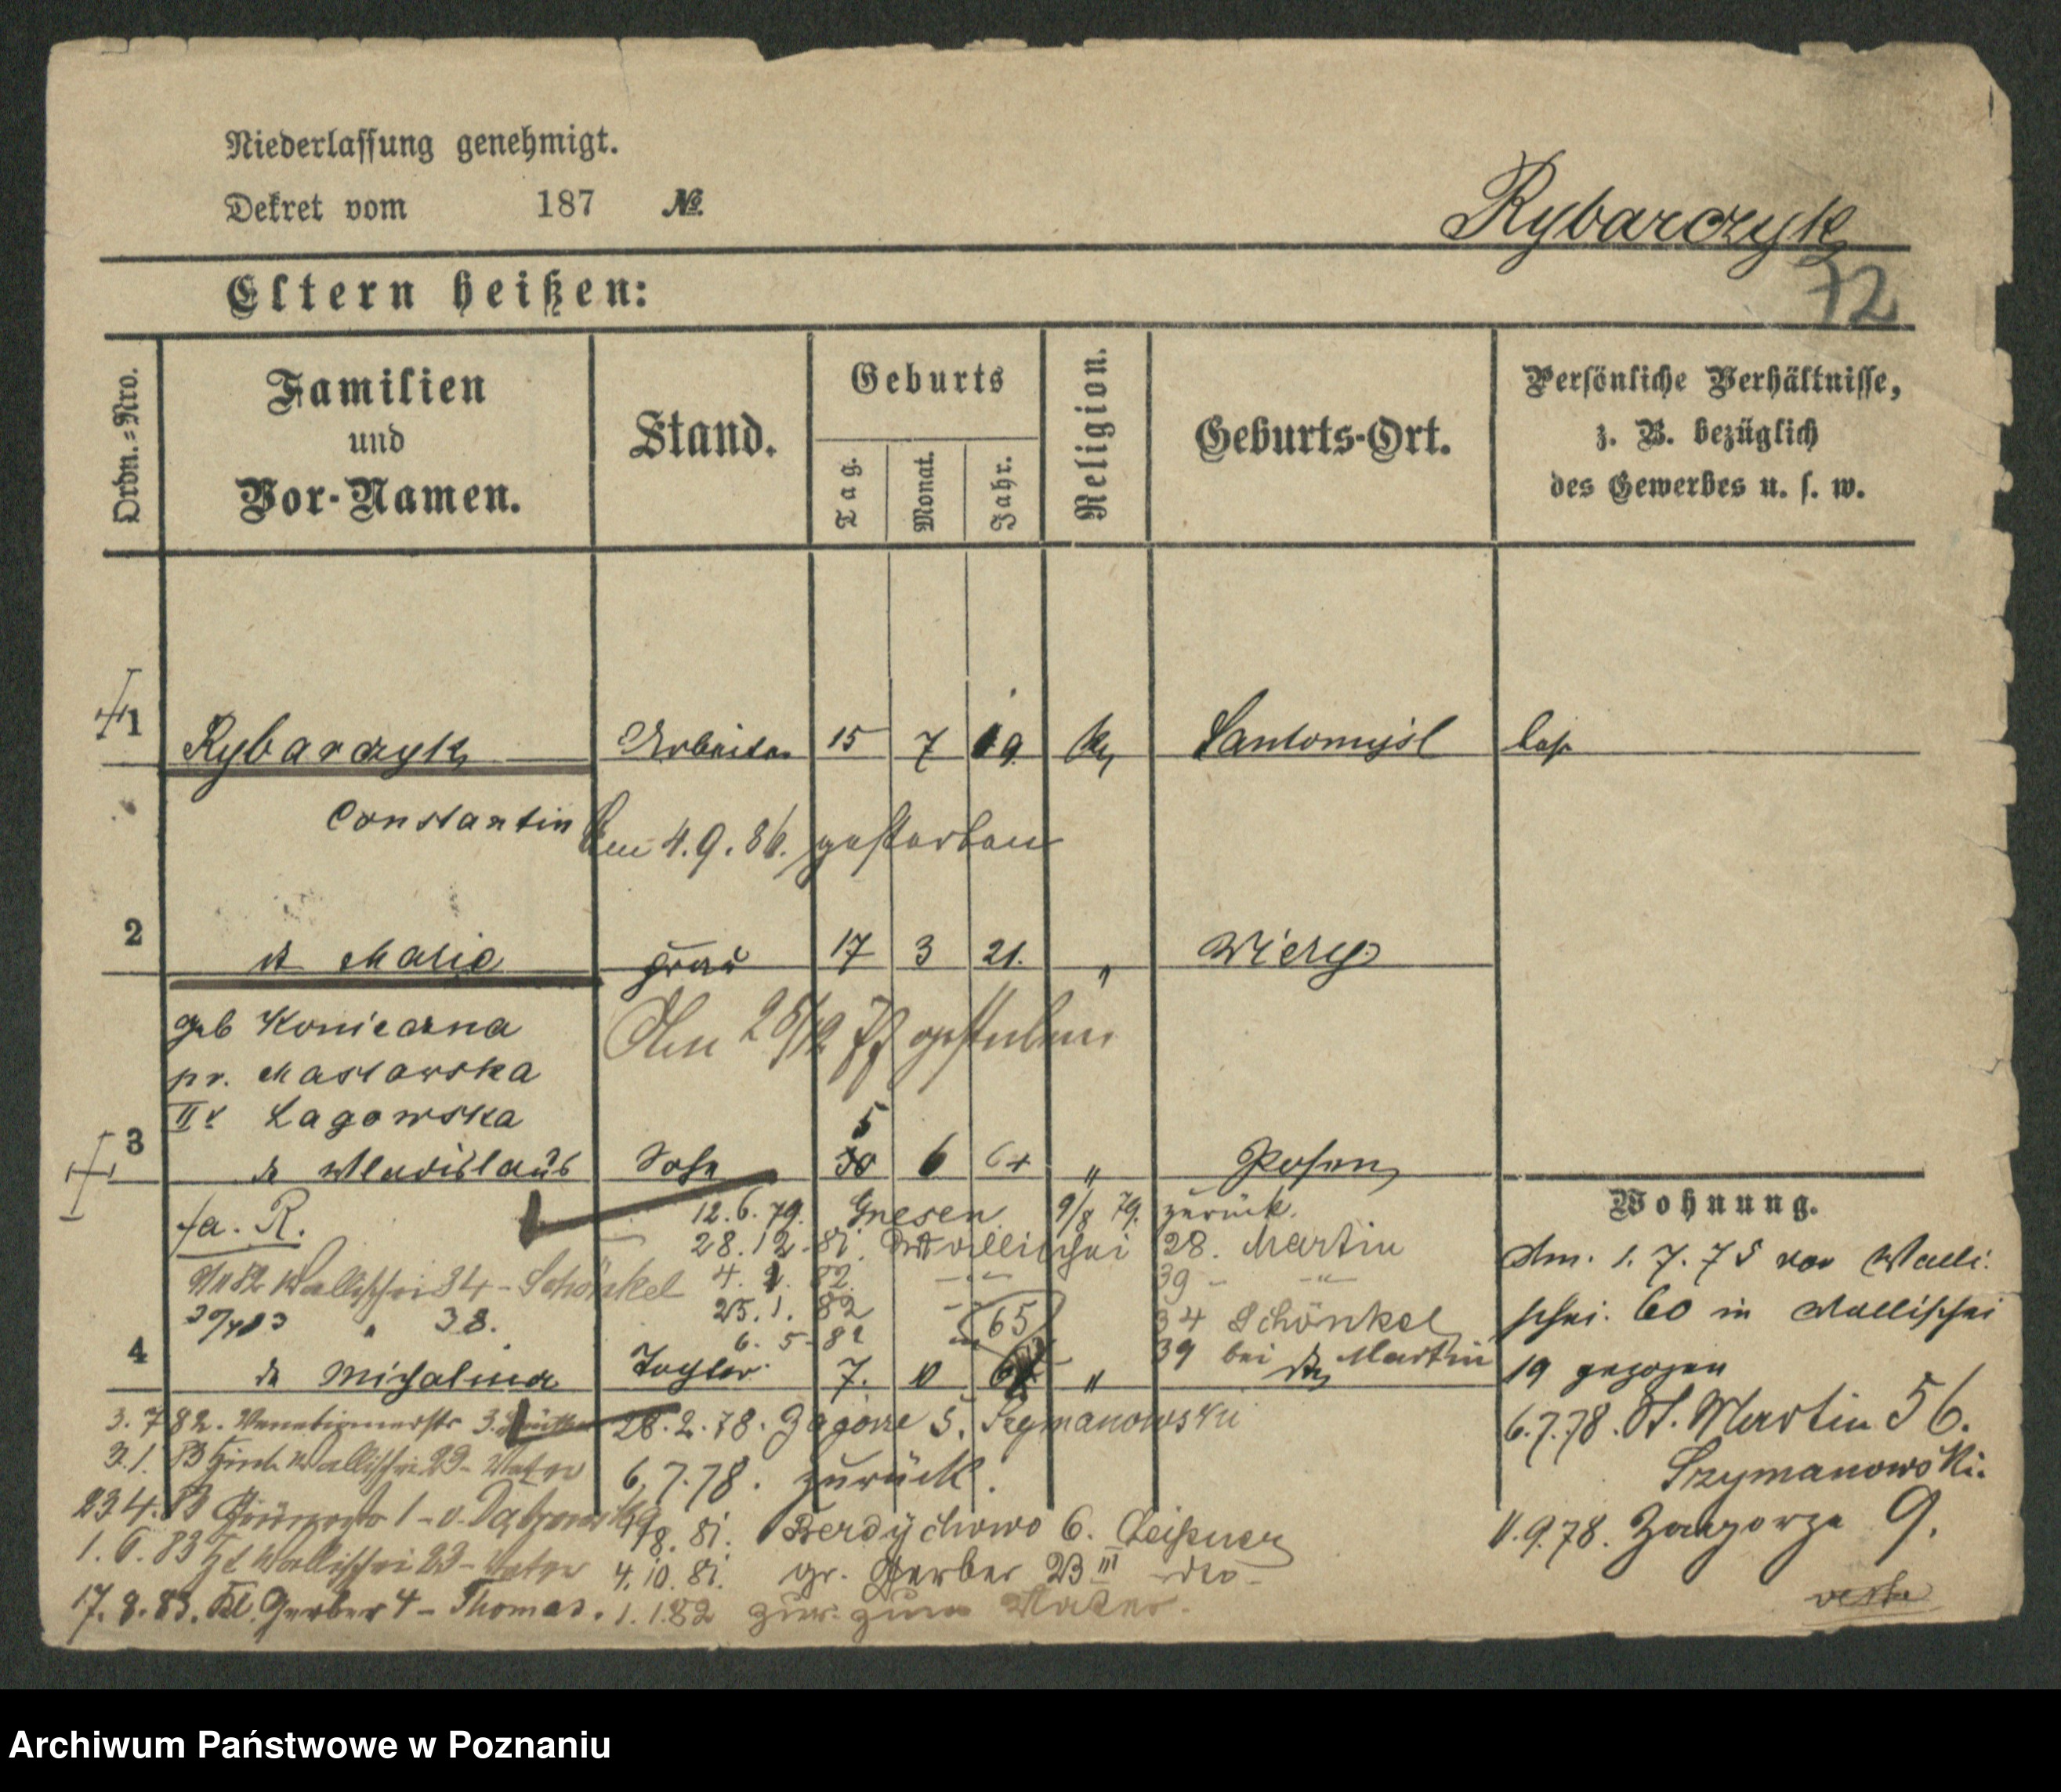 Niederlassung genehmigt.
Dekret vom 187 №.
Rybarczyk
72
Eltern heißen:
Ordn.=Nro.
Familien
und
Vor-Namen.
Stand.
Geburts
Tag.
Monat.
Jahr.
Religion.
Geburts-Ort.
Persönliche Verhältnisse,
z. B. bezüglich
des Gewerbes u. s. w.
1 Rybarczyk Arbeiter 15 7 19 k Santomysl
Constantin
Am 4.9.86. gestorben
2 Marie Frau 17 3 21. "
geb Konieczna
Am gestorben
pr.
II Lagowska
3 Wladislaus Sohn 5 6 64 " Posen
fa. R.
12.6.79. Gnesen 9/8 79. zurück.
28.12.81. Wallischei 28. Martin
Wallischei 34 - Schönkel 4. 82 -"- 39 - -"-
38. 25.1.82 34 Schönkel
6.5.82 65 39 bei Martin
4 Michalina Tochter 7. 10 "
Wohnung.
Am. 1.7.75 von Walli-
schei. 60 in Wallischei
19 gezogen
6.7.78. St. Martin 56.
Szymanowski.
11.9.78. Zagorze 9.
3.7.82. Venetianerstr 3.
28.2.78. Zagorze 5. Szymanowski
3.1.83 Wallischei 29 - Vater
6.7.78. zurück.
23.4.83 1 - v. Dąbrowska
81. Berdychowo 6.
1.6.83 Wallischei 23 - Vater
4.10.81. gr. Gerber 23 III -dto-
17.8.83. Kl. Gerber 4 - Thomas.
1.1.82 zur. zum Vater.
Archiwum Państwowe w Poznaniu